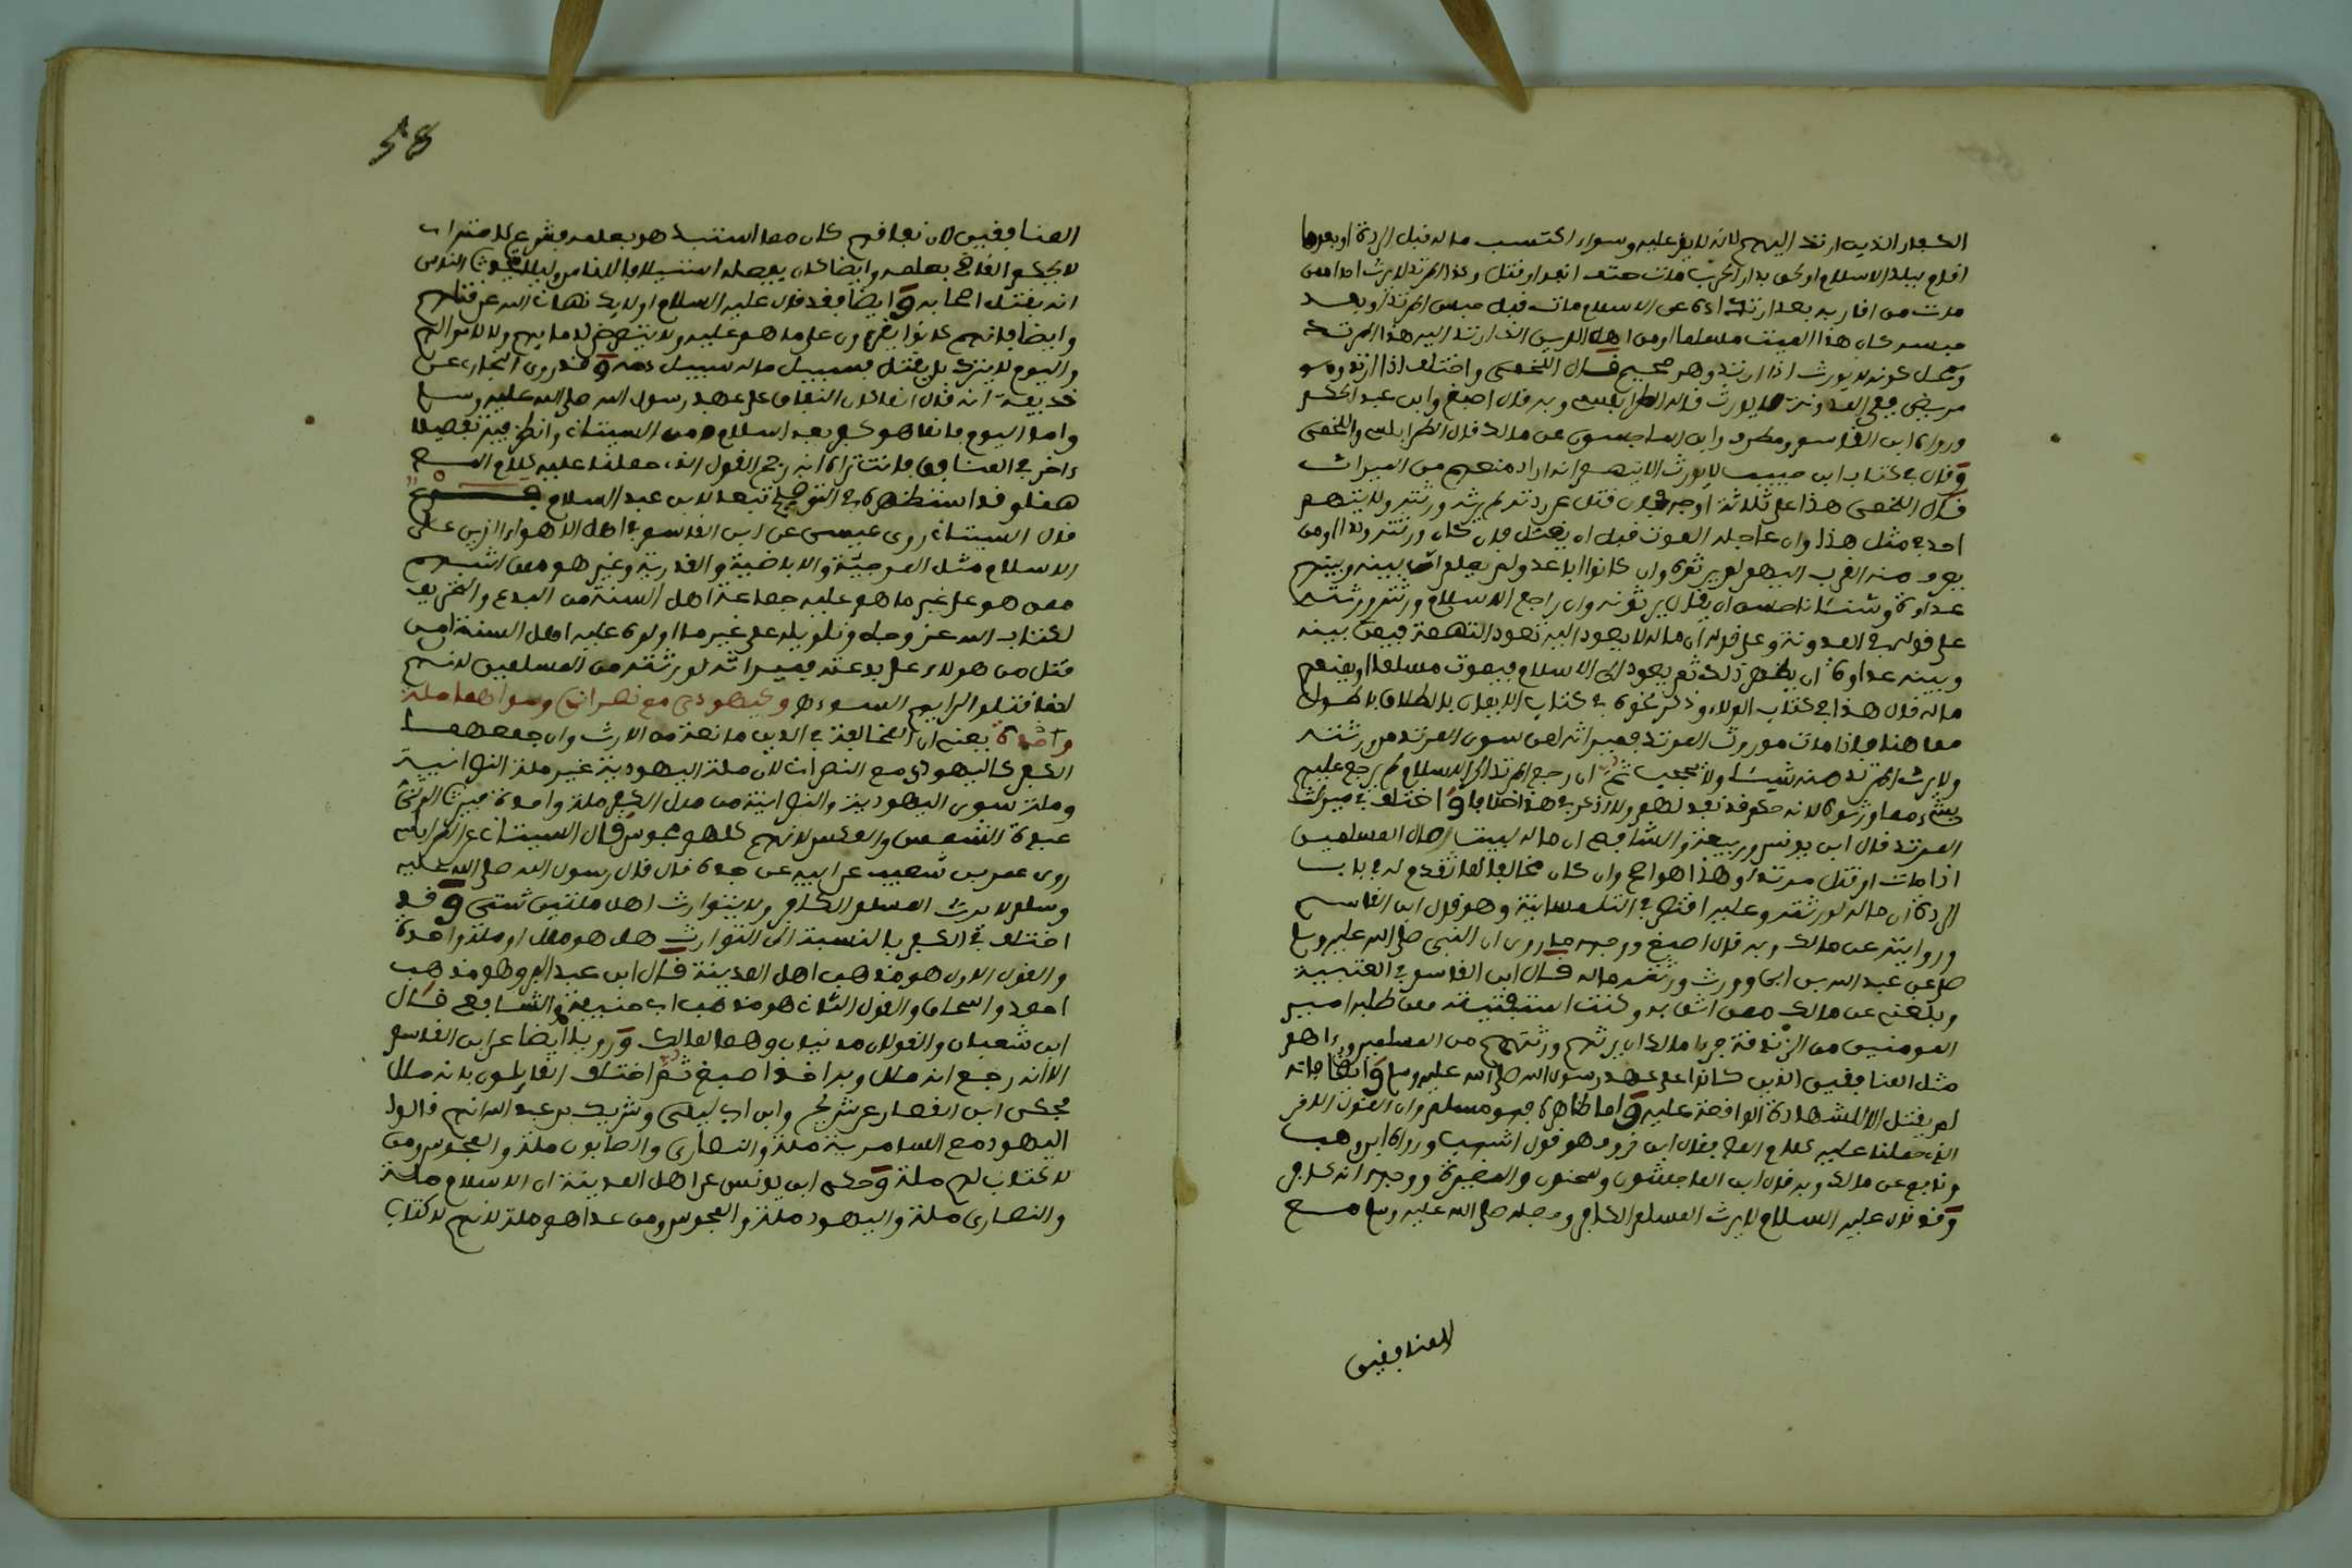 الكفار الذين ارتد اليهم لانه لا يقر عليه وسواء اكتسب ماله قبل الردة او بعدها
اقام ببلد الاسلام او لحق بدار الحرب مات حتف انفه او قتل وكذا المرتد لا يرث احدا ممن
مات من اقاربه بعد ارتداده عن الاسلام مات قبل حبس المرتد او بعد
حبسه كان هذا الميت مسلما او من اهل الدين الذي ارتد اليه هذا المرتد
ومحل كونه لا يورث اذا ارتد وهو صحيح قال اللخمي واختلف اذا ارتد وهو
مريض ففي المدونة لا يورث قاله الطرابلسي وبه قال اصبغ وابن عبد الحكم
ورواه ابن القاسم ومطرف وابن الماجشون عن مالك قال الطرابلسي واللخمي
وقال في كتاب ابن حبيب لا يورث الا ان يتهم انه اراد منعهم من الميراث
قال اللخمي هذا على ثلاثة اوجه فان قتل عن ردته لم يرثه ورثته ولا يتهم
احد في مثل هذا وان عاجله الموت قبل ان يقتل فان كان ورثته ولدا او من
يعرف منه القرب اليهم لم يرثوه وان كانوا اباعد ولم يعلم ان بينه وبينهم
عداوة وشنئانا حسن ان يقال يرثونه وان راجع الاسلام ورثه ورثته
على قوله في المدونة وعلى قوله ان ماله لا يعود اليه تعود التهمة فيمن بينه
وبينه عداوة ان يظهر ذلك ثم يعود الى الاسلام فيموت مسلما او يمنعهم
ماله قال هذا في كتاب الولاء وذكر نحوه في كتاب الايمان بالطلاق بالطول
مما هنا فاذا مات موروث المرتد فميراثه لمن سوى المرتد من ورثته
ولا يرث المرتد منه شيئا ولا يحجب ثم ان رجع المرتد الى الاسلام لم يرجع عليهم
بشيء مما ورثوه لانه حكم قد نفذ لهم ولا اذكر في هذا خلافا واختلف في ميراث
المرتد قال ابن يونس وربيعة والشافعي ان ماله لبيت مال المسلمين
اذا مات او قتل مرتدا وهذا هو الاصح وان كان مخالفا لما تقدم له في باب
الردة ان ماله لورثته وعليه اقتصر في التلمسانية وهو قول ابن القاسم
وروايته عن مالك وبه قال اصبغ ووجهه ما روي ان النبي صلى الله عليه وسلم
صلى على عبد الله بن ابي وورث ورثته ماله قال ابن القاسم في العتبية
وبلغني عن مالك ممن اثق به وكنت استفتيته ممن طلبه امير
المومنين من الزنادقة جرى مالك ان يرثهم ورثتهم من المسلمين وراهم
مثل المنافقين الذين كانوا على عهد رسول الله صلى الله عليه وسلم وايضا فانه
لم يقتل الا للشهادة الواقعة عليه واما ظاهره فهو مسلم وان القول الاخر
الذي حملنا عليه كلام المص فقال ابن فرو هو قول اشهب ورواه ابن وهب
ونافع عن مالك وبه قال ابن الماجشون وسحنون والمغيرة ووجهه انه كافر
وقد قال عليه السلام لا يرث المسلم الكافر وحمله صلى الله عليه وسلم مع
المنافقين
58
المنافقين لان نفاقهم كان مما استبد هو بعلمه فشرع لامته ان
لا يحكم القاضي بعلمه وايضا كان يفعله استيلافا للناس ولئلا يتحدث الناس
انه يقتل اصحابه وايضا فقد قال عليه السلام اولايك نهاني الله عن قتلهم
وايضا فانهم كانوا يقرون على ما هو عليه ولا يتعرض لدمايهم ولا لاموالهم
واليوم لا يترك بل يقتل فسبيل ماله سبيل دمه وقد روى البخاري عن
حذيفة انه قال انما كان النفاق على عهد رسول الله صلى الله عليه وسلم
واما اليوم فانما هو كفر بعد اسلام من السيتاني وانظر فيه تفصيلا
ءاخر في المنافق فانت تراه انه رجح القول الذي حملنا عليه كلام المص
هنا وقد استظهره في التوضيح تبعا لابن عبد السلام
قال السيتاني روى عيسى عن ابن القاسم في اهل الاهواء الذين على
الاسلام مثل المرجئة والاباضية والقدرية وغيرهم ممن اشبههم
ممن هو على غير ما هو عليه جماعة اهل السنة من البدع والتحريف
لكتاب الله عز وجل وتاويله على غير ما اولوه عليه اهل السنة من
قتل من هولاء على بدعته فميراثه لورثته من المسلمين لانهم
انما قتلوا لرايهم السوء وكيهودي مع نصراني وسواهما ملة
واحدة يعني ان المخالفة في الدين مانعة من الارث وان جمعهما
الكفر كاليهودي مع النصراني لان ملة اليهودية غير ملة النصرانية
وملة سوى اليهودية والنصرانية من ملل الكفر ملة واحدة فيرث الوثني
عبدة الشمس والعكس لانهم كلهم مجوس قال السيتاني عن الطرابلسي
روى عمر بن شعيب عن ابيه عن جده قال قال رسول الله صلى الله عليه
وسلم لا يرث المسلم الكافر ولا يتوارث اهل ملتين شتى وقد
اختلف في الكفر بالنسبة الى التوارث هل هو ملل او ملة واحدة
والقول الاول هو مذهب اهل المدينة قال ابن عبد البر وهو مذهب
احمد واسحاق والقول الثاني هو مذهب ابي حنيفة والشافعي قال
ابن شعبان والقولان مدنيان وهما لمالك ورويا ايضا عن ابن القاسم
الا انه رجع انه ملل وبه اخذ اصبغ ثم اختلف القايلون بانه ملل
فحكى ابن القصار عن شريح وابن ابي ليلى وشريك بن عبد الله انهم قالوا
اليهود مع السامرية ملة والنصارى والصابون ملة والمجوس ومن
لا كتاب لهم ملة وحكى ابن يونس عن اهل المدينة ان الاسلام ملة
والنصارى ملة واليهود ملة والمجوس ومن عداهم ملة لانهم لا كتاب